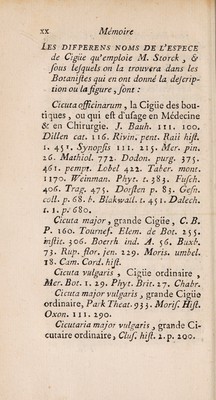 xx Mémoire
LES DIFFERENS NOMS DE L'ESPECE
de Cigüe qu'emploie M. Storck, &
sous lesquels on la trouvera dans les
Botanistes qui en ont donné la descrip-
tion ou la figure, sont :
Cicuta officinarum, la Cigüe des bou-
tiques, ou qui est d'usage en Médecine
& en Chirurgie. J. Bauh. III. 100.
Dillen cat. 116. Rivin. pent. Raii hist.
1. 451. Synopsis III. 215. Mer. pin.
26. Mathiol. 772. Dodon. purg. 375.
461. pempt. Lobel 422. Taber. mont.
1170. Weinman. Phyt. t. 383. Fusch.
406. Trag. 475. Dorsten p. 83. Gesn.
coll. p. 68. b. Blakwall. t. 451. Dalech.
t. 1. p. 680.
Cicuta major, grande Cigüe, C. B.
P. 160. Tournef. Elem. de Bot. 255.
instit. 306. Boerrh ind. A. 56. Buxb.
73. Rup. flor. jen. 229. Moris. umbel.
18. Cam. Cord. hist.
Cicuta vulgaris, Cigüe ordinaire,
Mer. Bot. 1. 29. Phyt. Brit. 27. Chabr.
Cicuta major vulgaris, grande Cigüe
ordinaire, Park Theat. 933. Moris. Hist.
Oxon. III. 290.
Cicutaria major vulgaris, grande Ci-
cutaire ordinaire, Clus. hist. 2. p. 200.